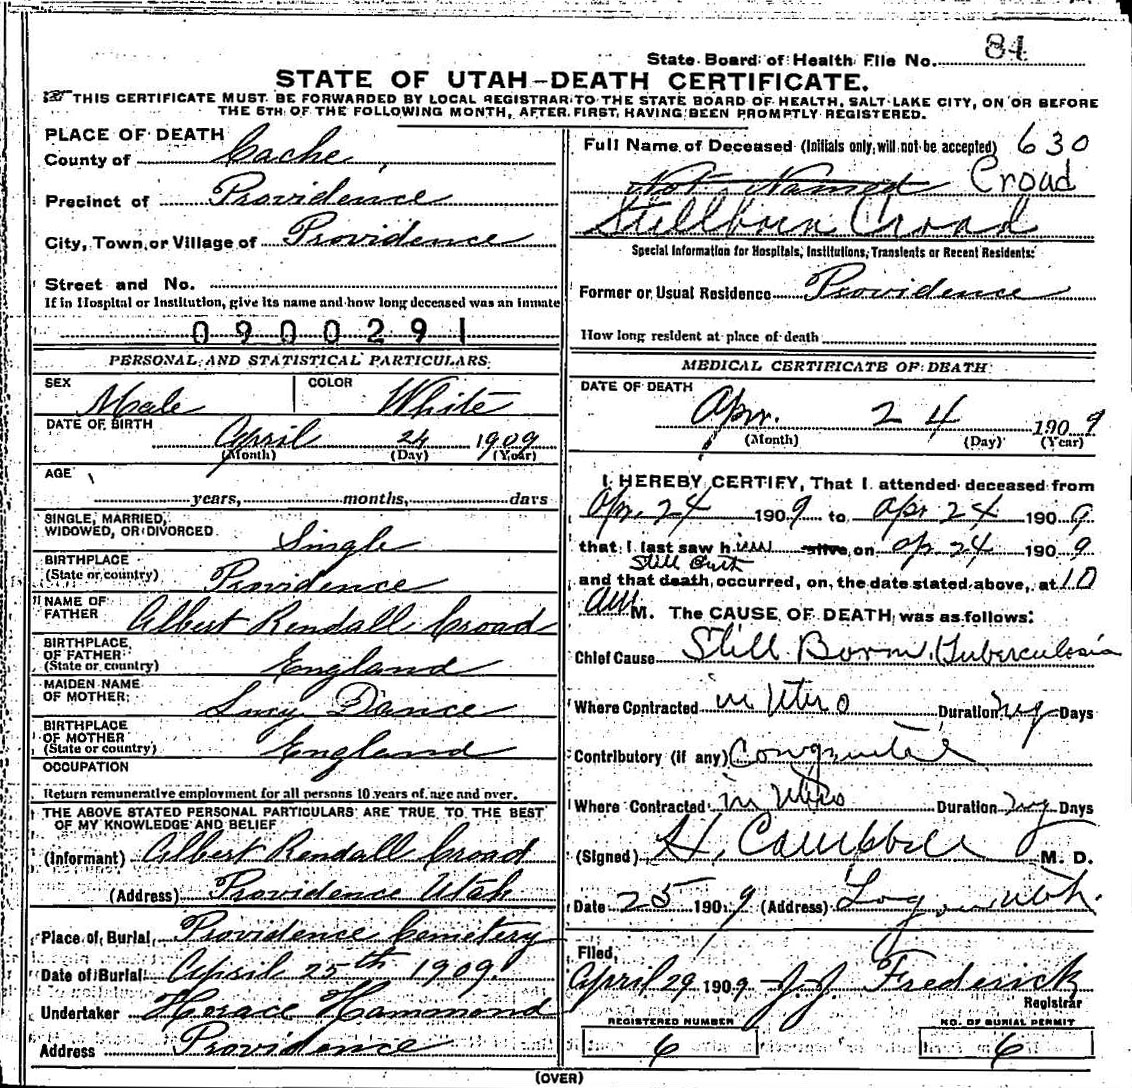 State Board of Health File No. 84
STATE OF UTAH—DEATH CERTIFICATE.
THIS CERTIFICATE MUST BE FORWARDED BY LOCAL REGISTRAR TO THE STATE BOARD OF HEALTH, SALT LAKE CITY, ON OR BEFORE
THE 5TH OF THE FOLLOWING MONTH, AFTER FIRST HAVING BEEN PROMPTLY REGISTERED.
PLACE OF DEATH
County of Cache
Precinct of Providence
City, Town or Village of Providence
Street and No.
If in Hospital or Institution, give its name and how long deceased was an inmate
0900291
PERSONAL AND STATISTICAL PARTICULARS
SEX Male COLOR White
DATE OF BIRTH April 24 1909
(Month) (Day) (Year)
AGE
years, months, days
SINGLE, MARRIED,
WIDOWED, OR DIVORCED Single
BIRTHPLACE
(State or country) Providence
NAME OF
FATHER Albert Rendall Croad
BIRTHPLACE
OF FATHER
(State or country) England
MAIDEN NAME
OF MOTHER Lucy Dance
BIRTHPLACE
OF MOTHER
(State or country) England
OCCUPATION
Return remunerative employment for all persons 10 years of age and over.
THE ABOVE STATED PERSONAL PARTICULARS ARE TRUE TO THE BEST
OF MY KNOWLEDGE AND BELIEF
(Informant) Albert Rendall Croad
(Address) Providence Utah
Place of Burial Providence Cemetery
Date of Burial April 25th 1909
Undertaker Horace Hammond
Address Providence
Full Name of Deceased (Initials only, will not be accepted) 630
Not Named Croad
Stillborn Croad
Special Information for Hospitals, Institutions, Transients or Recent Residents:
Former or Usual Residence Providence
How long resident at place of death
MEDICAL CERTIFICATE OF DEATH
DATE OF DEATH
Apr. 24 1909
(Month) (Day) (Year)
I HEREBY CERTIFY, That I attended deceased from
Apr. 24 1909 to Apr 24 1909
that I last saw him alive on Ap 24 1909
Still Birth
and that death occurred, on the date stated above, at 10
AM M. The CAUSE OF DEATH was as follows:
Chief Cause Still Born Tuberculosis
Where Contracted in Utero Duration Days
Contributory (if any)
Where Contracted in Utero Duration Days
(Signed) H. Campbell M. D.
Date 25 1909 (Address) Logan Utah.
Filed,
April 29 1909 J. J. Frederick
Registrar
REGISTERED NUMBER
6
NO. OF BURIAL PERMIT
6
(OVER)